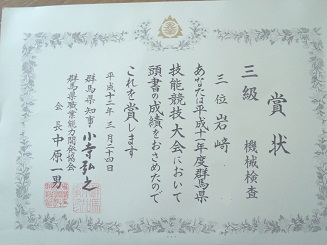 賞状
三級 機械検査
三位 岩崎
あなたは平成十一年度群馬県
技能競技大会において
頭書の成績をおさめたので
これを賞します
平成十二年三月二十四日
群馬県知事 小寺弘之
群馬県職業能力開発協会
会長 中原一男